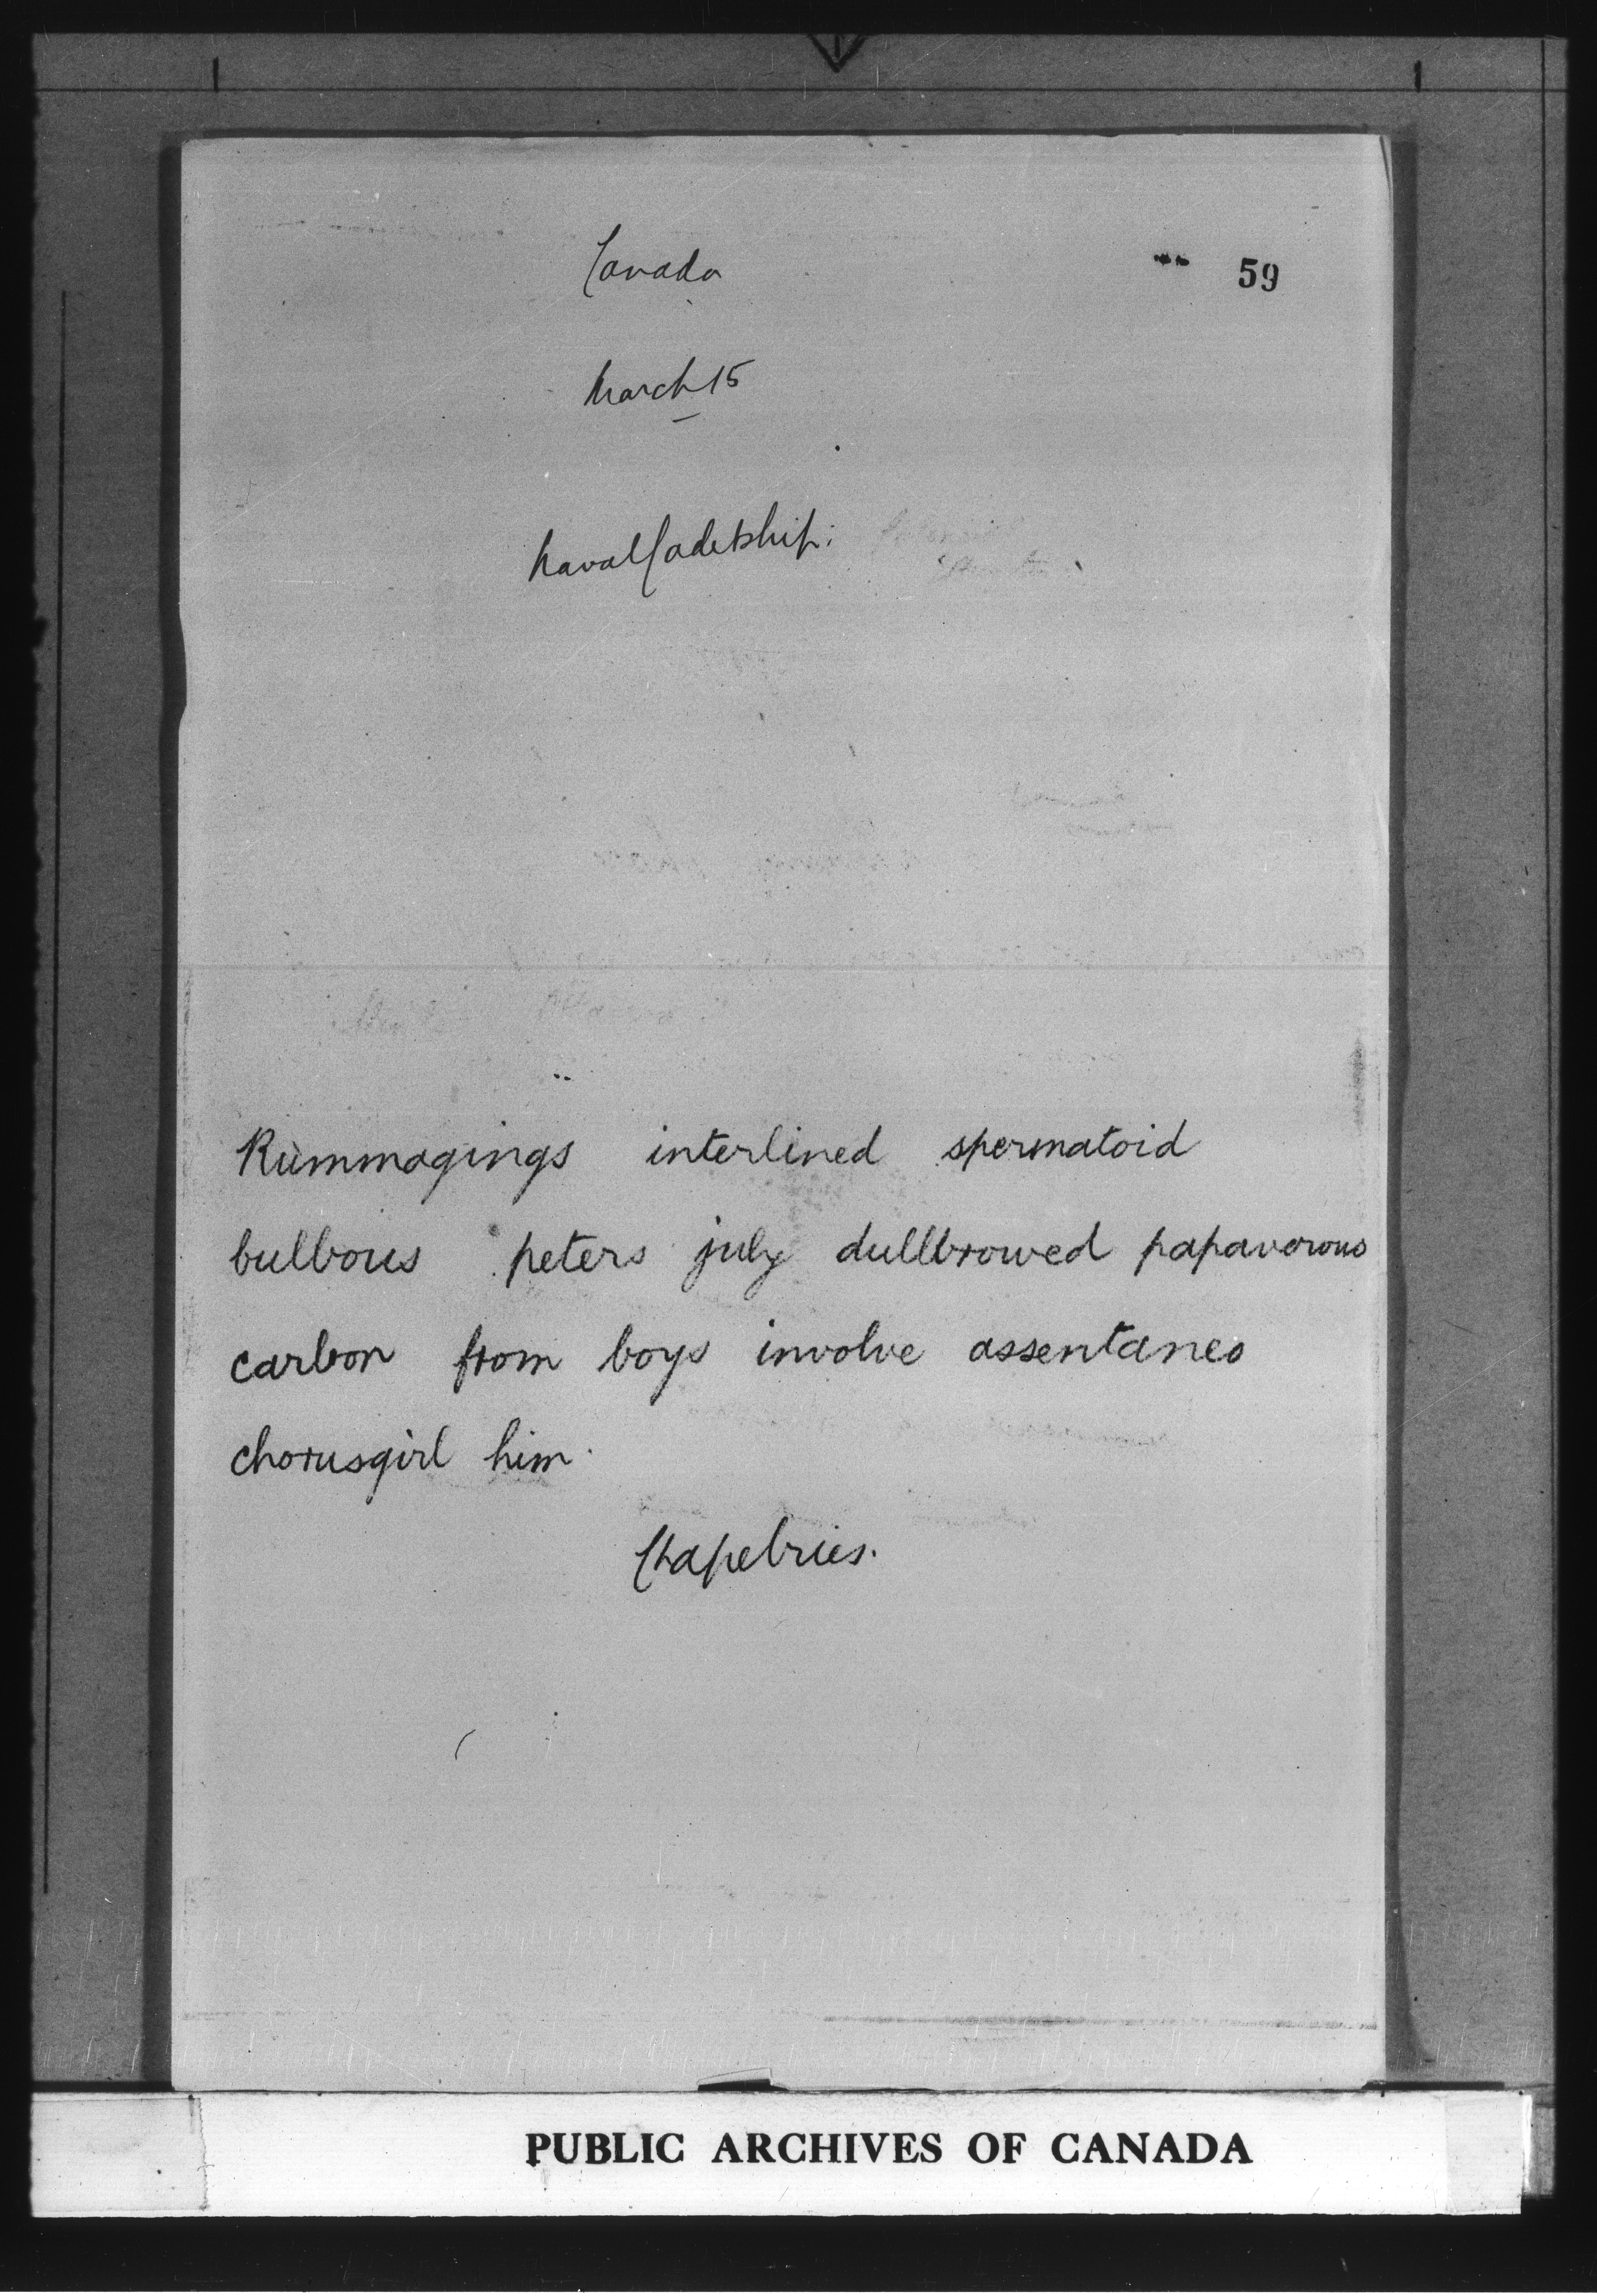 Canada
59
March 15
Naval Cadetship:
Rummagings interlined spermatoid
bulbous peters july dullbrowed papaverous
carbon from boys involve assentaneo
chorusgirl him.
Chapelries.
PUBLIC ARCHIVES OF CANADA